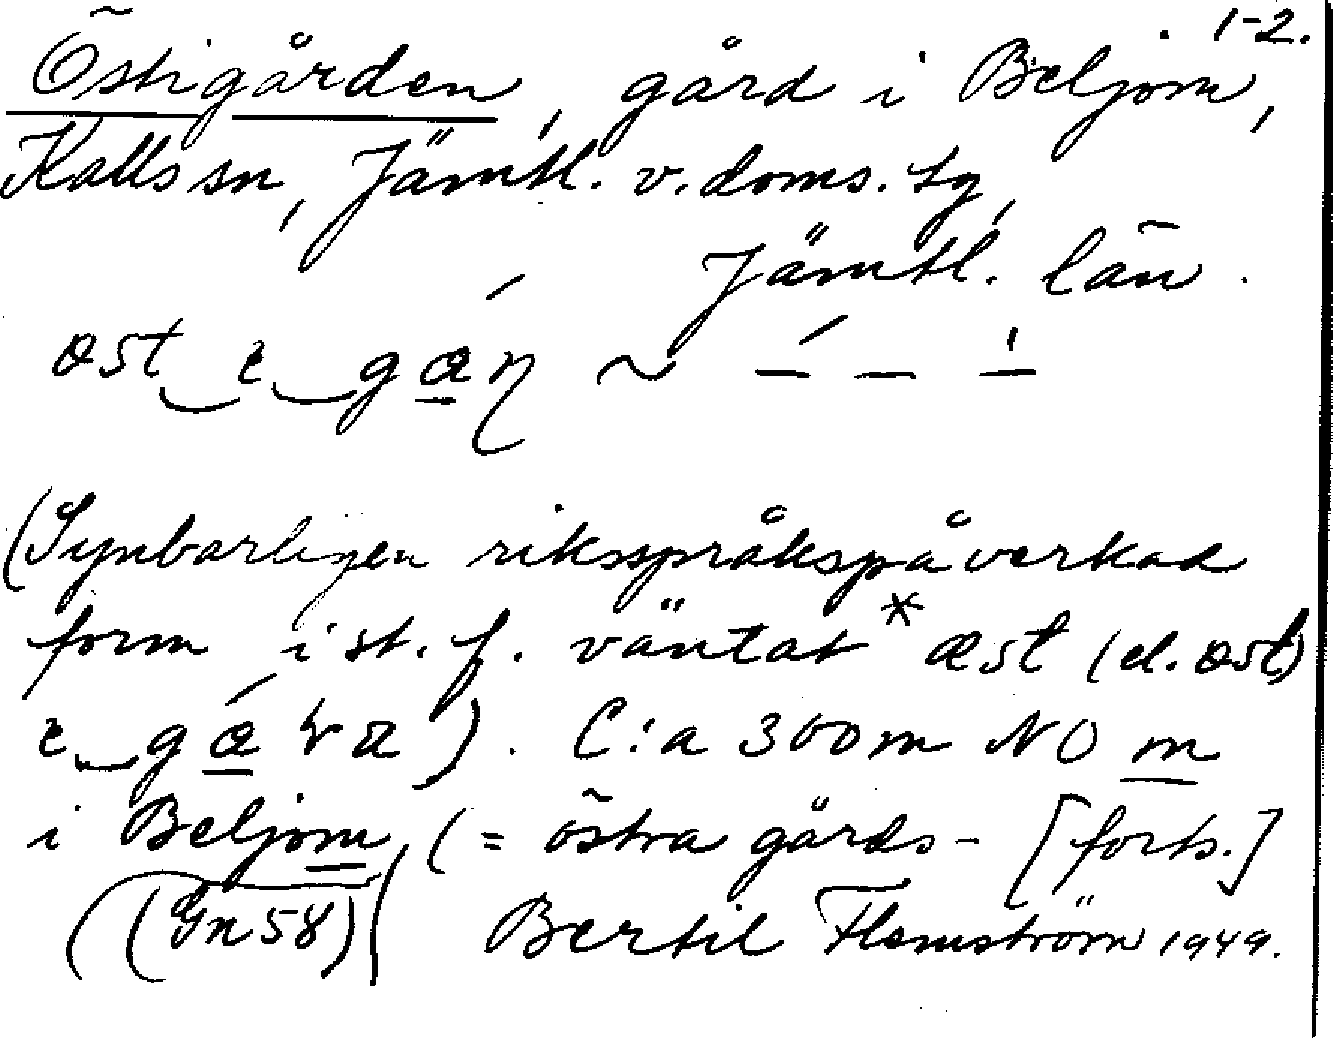 1-2.
Östigården, gård i Beljom,
Kalls sn, Jämtl. v. doms. tg,
Jämtl. län.
œst e gæ̱ɳ ~ – – –
(Synbarligen riksspråkspåverkad
form i st. f. väntat *æst (el. œst)
e gæ̱ ra). C:a 300 m NO m
i Beljom, (= östra gårds- [forts.]
((Gn 58) Bertil Flemström 1949.